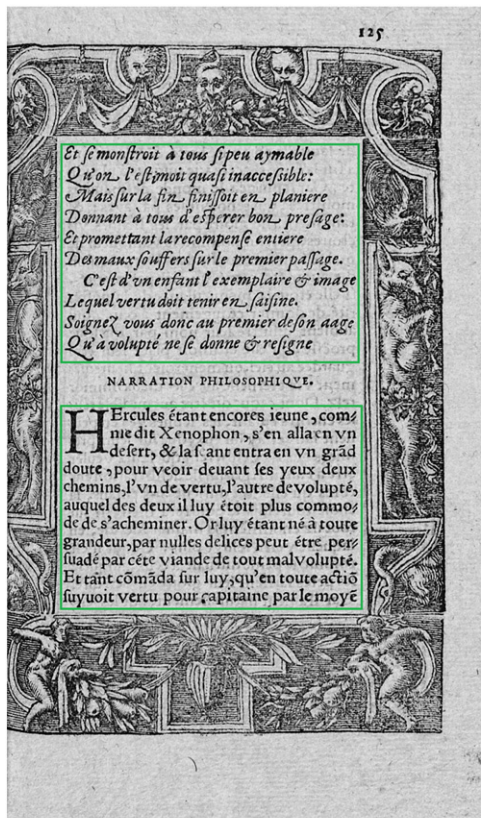 125
Et se monstroit à tous si peu aymable
Qu'on l'estimoit quasi inaccessible:
Mais sur la fin finissoit en planiere
Donnant à tous d'esperer bon presage:
Et promettant la recompense entiere
Des maux souffers sur le premier passage.
C'est d'vn enfant l'exemplaire & image
Lequel vertu doit tenir en saisine.
Soignez vous donc au premier de son aage
Qu'à volupté ne se donne & resigne
NARRATION PHILOSOPHIQVE.
HErcules étant encores ieune, com⸗
me dit Xenophon, s'en alla en vn
desert, & la s'eant entra en vn grãd
doute, pour veoir deuant ses yeux deux
chemins, l'vn de vertu, l'autre de volupté,
auquel des deux il luy étoit plus commo⸗
de de s'acheminer. Or luy étant né à toute
grandeur, par nulles delices peut étre per⸗
suadé par céte viande de tout mal volupté.
Et tant comãda sur luy, qu'en toute actiõ
suyuoit vertu pour capitaine par le moyẽ